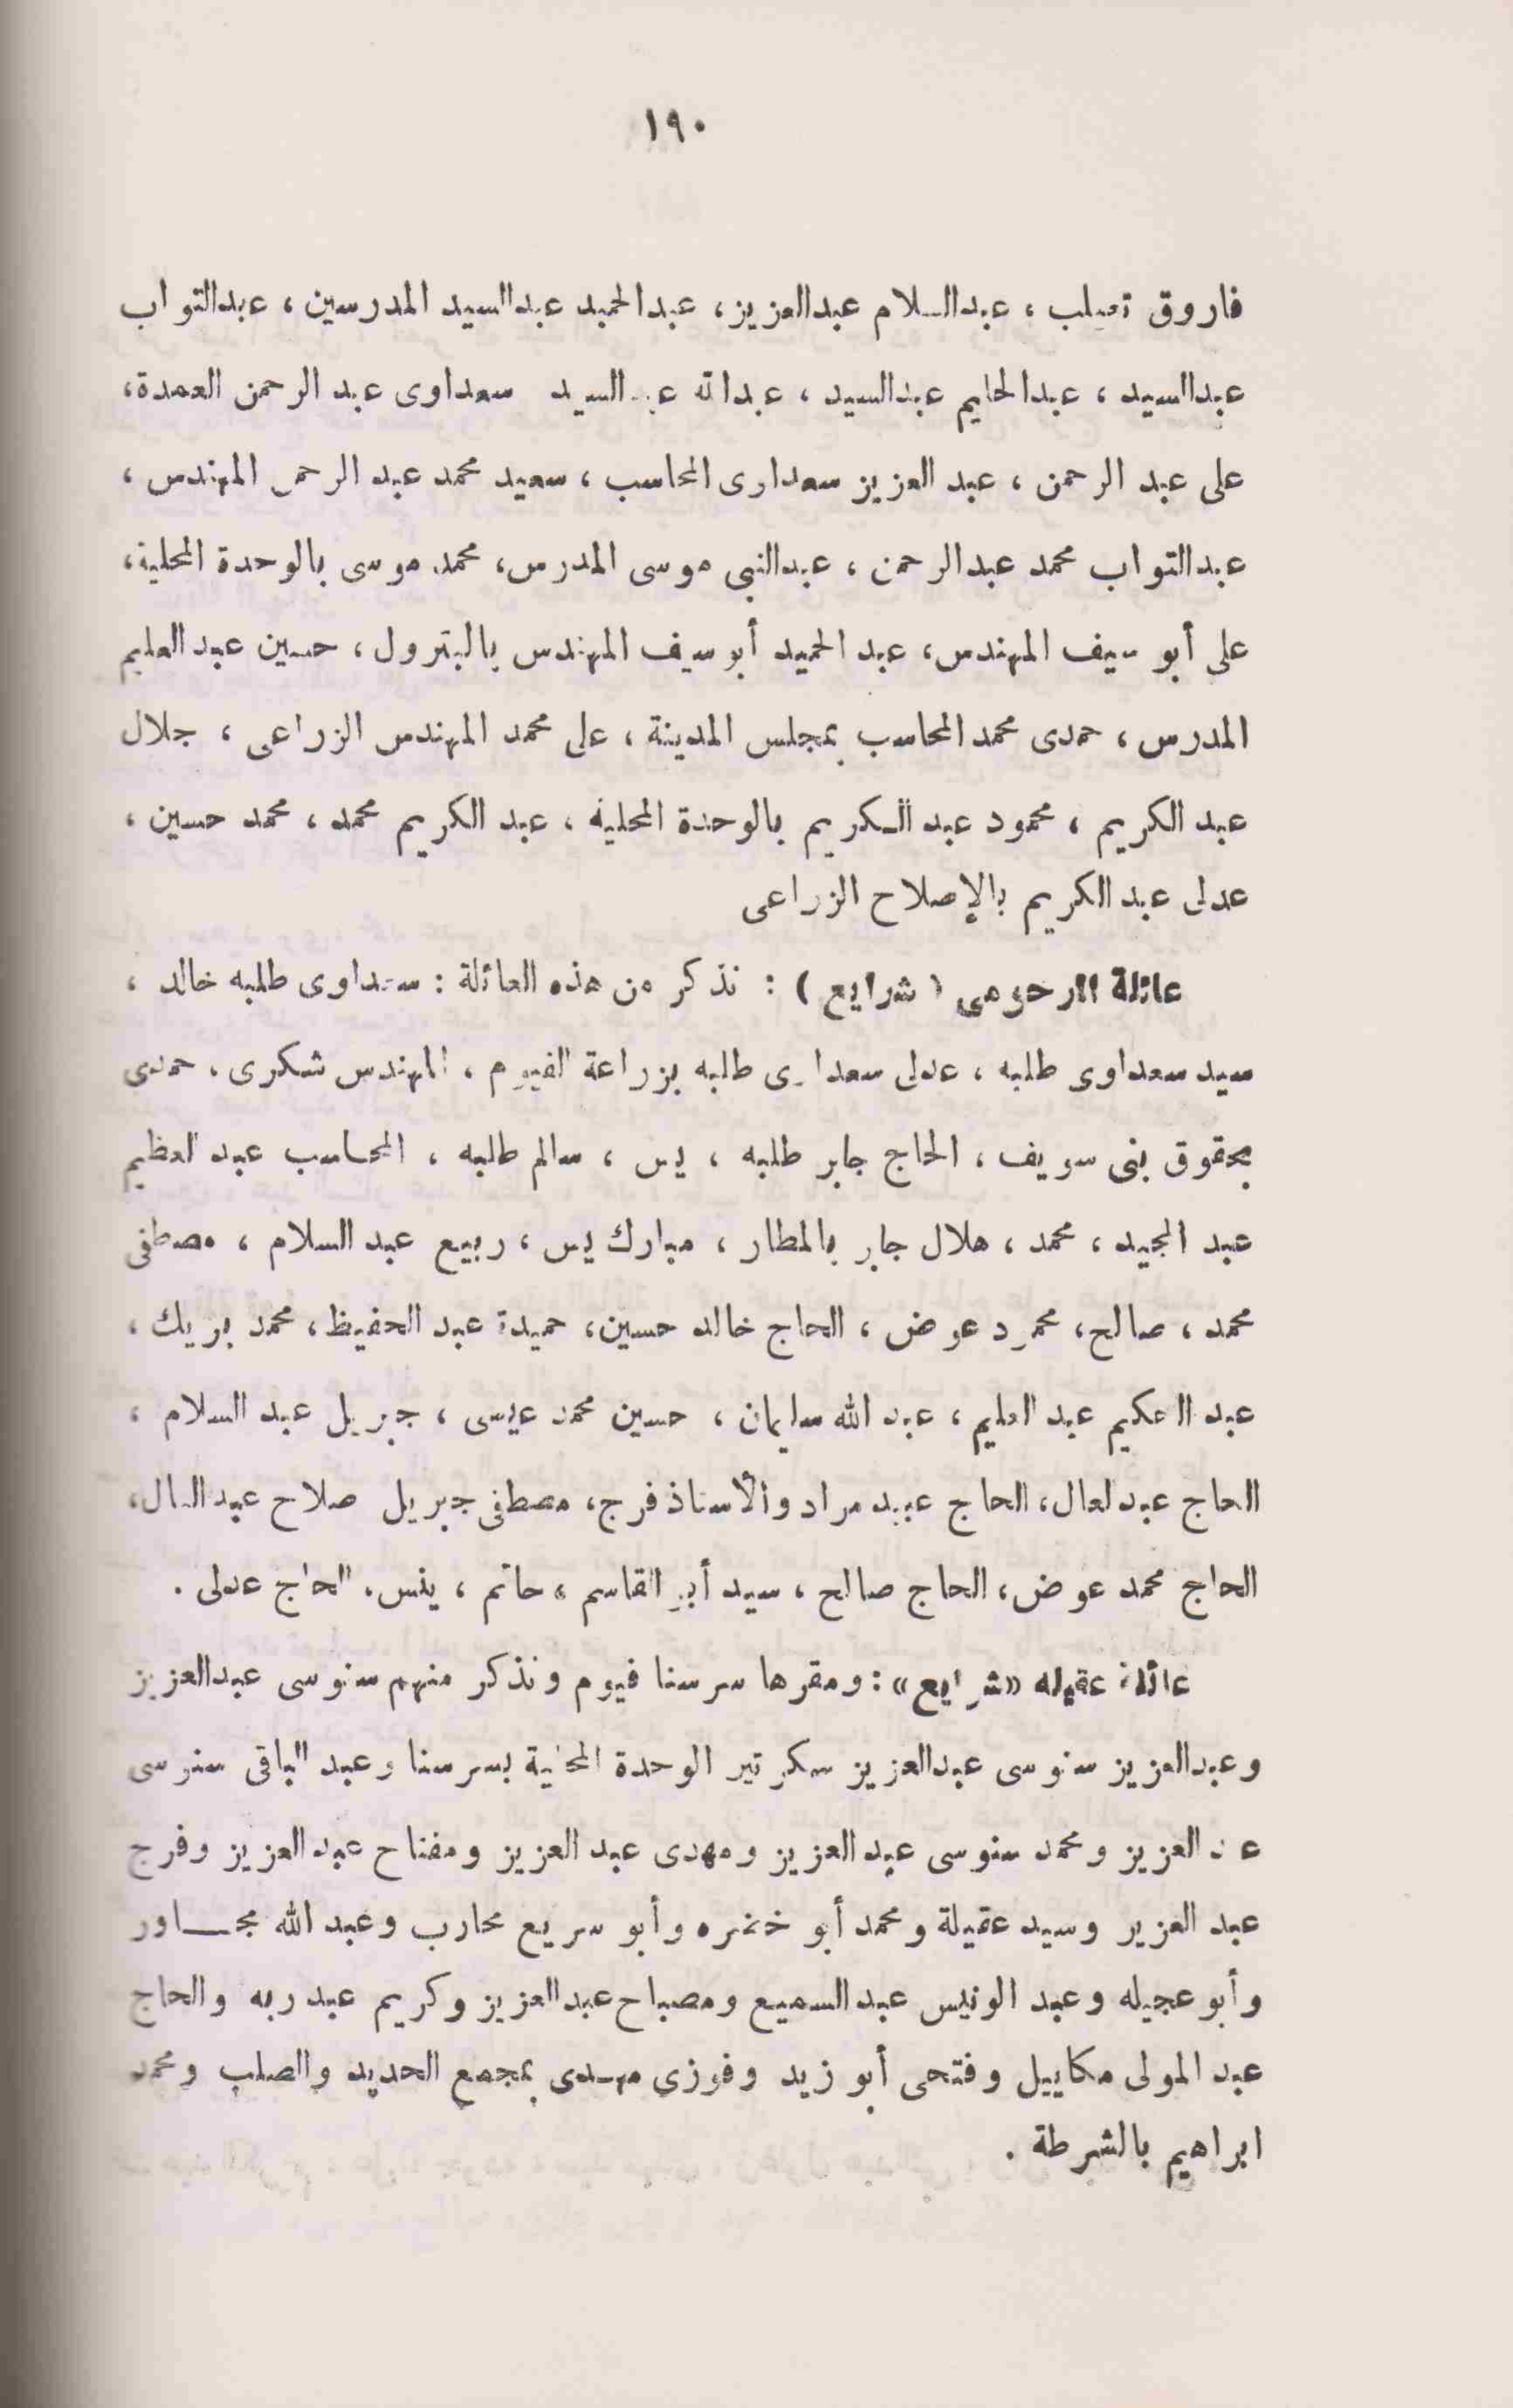 ١٩٠
فاروق تعيلب ، عبدالسلام عبدالعزيز، عبدالحميد عبدالسيد المدرسين ، عبدالتواب
عبدالسيد ، عبدالحليم عبدالسيد ، عبدالله عبد السيد سعداوى عبد الرحمن العمدة،
على عبد الرحمن ، عبد العزيز سعداوى المحاسب ، سعيد محمد عبد الرحمن المهندس ،
عبدالتواب محمد عبدالرحمن ، عبدالنبى موسى المدرس، محمد موسى بالوحدة المحلية،
على أبو سيف المهندس، عبد الحميد أبو سيف المهندس بالبترول ، حسين عبد العليم
المدرس ، حمدى محمد المحاسب بمجلس المدينة ، على محمد المهندس الزراعى ، جلال
عبد الكريم ، محمود عبد الكريم بالوحدة المحلية ، عبد الكريم محمد ، محمد حسين ،
عدلى عبد الكريم بالإصلاح الزراعى
عائلة الرحومى ( شرايع ) : نذكر من هذه العائلة : سعداوى طلبه خالد ،
سيد سعداوى طلبه ، عدلى سعداوى طلبه بزراعة الفيوم ، المهندس شكرى ، حمدى
بحقوق بنى سويف ، الحاج جابر طلبه ، يس ، سالم طلبه ، المحاسب عبد العظيم
عبد المجيد ، محمد ، هلال جابر بالمطار ، مبارك يس ، ربيع عبد السلام ، مصطفى
محمد ، صالح، محمود عوض ، الحاج خالد حسين، حميدة عبد الحفيظ ، محمد بريك ،
عبد الحكيم عبد العليم ، عبد الله سليمان ، حسين محمد عيسى ، جبريل عبد السلام ،
الحاج عبد العال، الحاج عبيد مراد والأستاذ فرج، مصطفى جبريل صلاح عبد العال،
الحاج محمد عوض، الحاج صالح ، سيد أبو القاسم ، حاتم ، ينس، الحاج عدلى .
عائلة عقيله «شرايع» : ومقرها سرسنا فيوم ونذكر منهم سنوسى عبدالعزيز
وعبدالعزيز سنوسى عبدالعزيز سكرتير الوحدة المحلية بسرسنا وعبد الباقى سنوسى
عبد العزيز ومحمد سنوسى عبد العزيز ومهدى عبد العزيز ومفتاح عبد العزيز وفرج
عبد العزيز وسيد عقيلة ومحمد أبو وأبو سريع محارب وعبد الله مجــاور
وأبو عجيله وعبد الونيس عبد السميع ومصباح عبدالعزيز وكريم عبد ربه والحاج
عبد المولى مكاييل وفتحى أبو زيد وفوزى مهدى بمجمع الحديد والصلب ومحمد
ابراهيم بالشرطة .